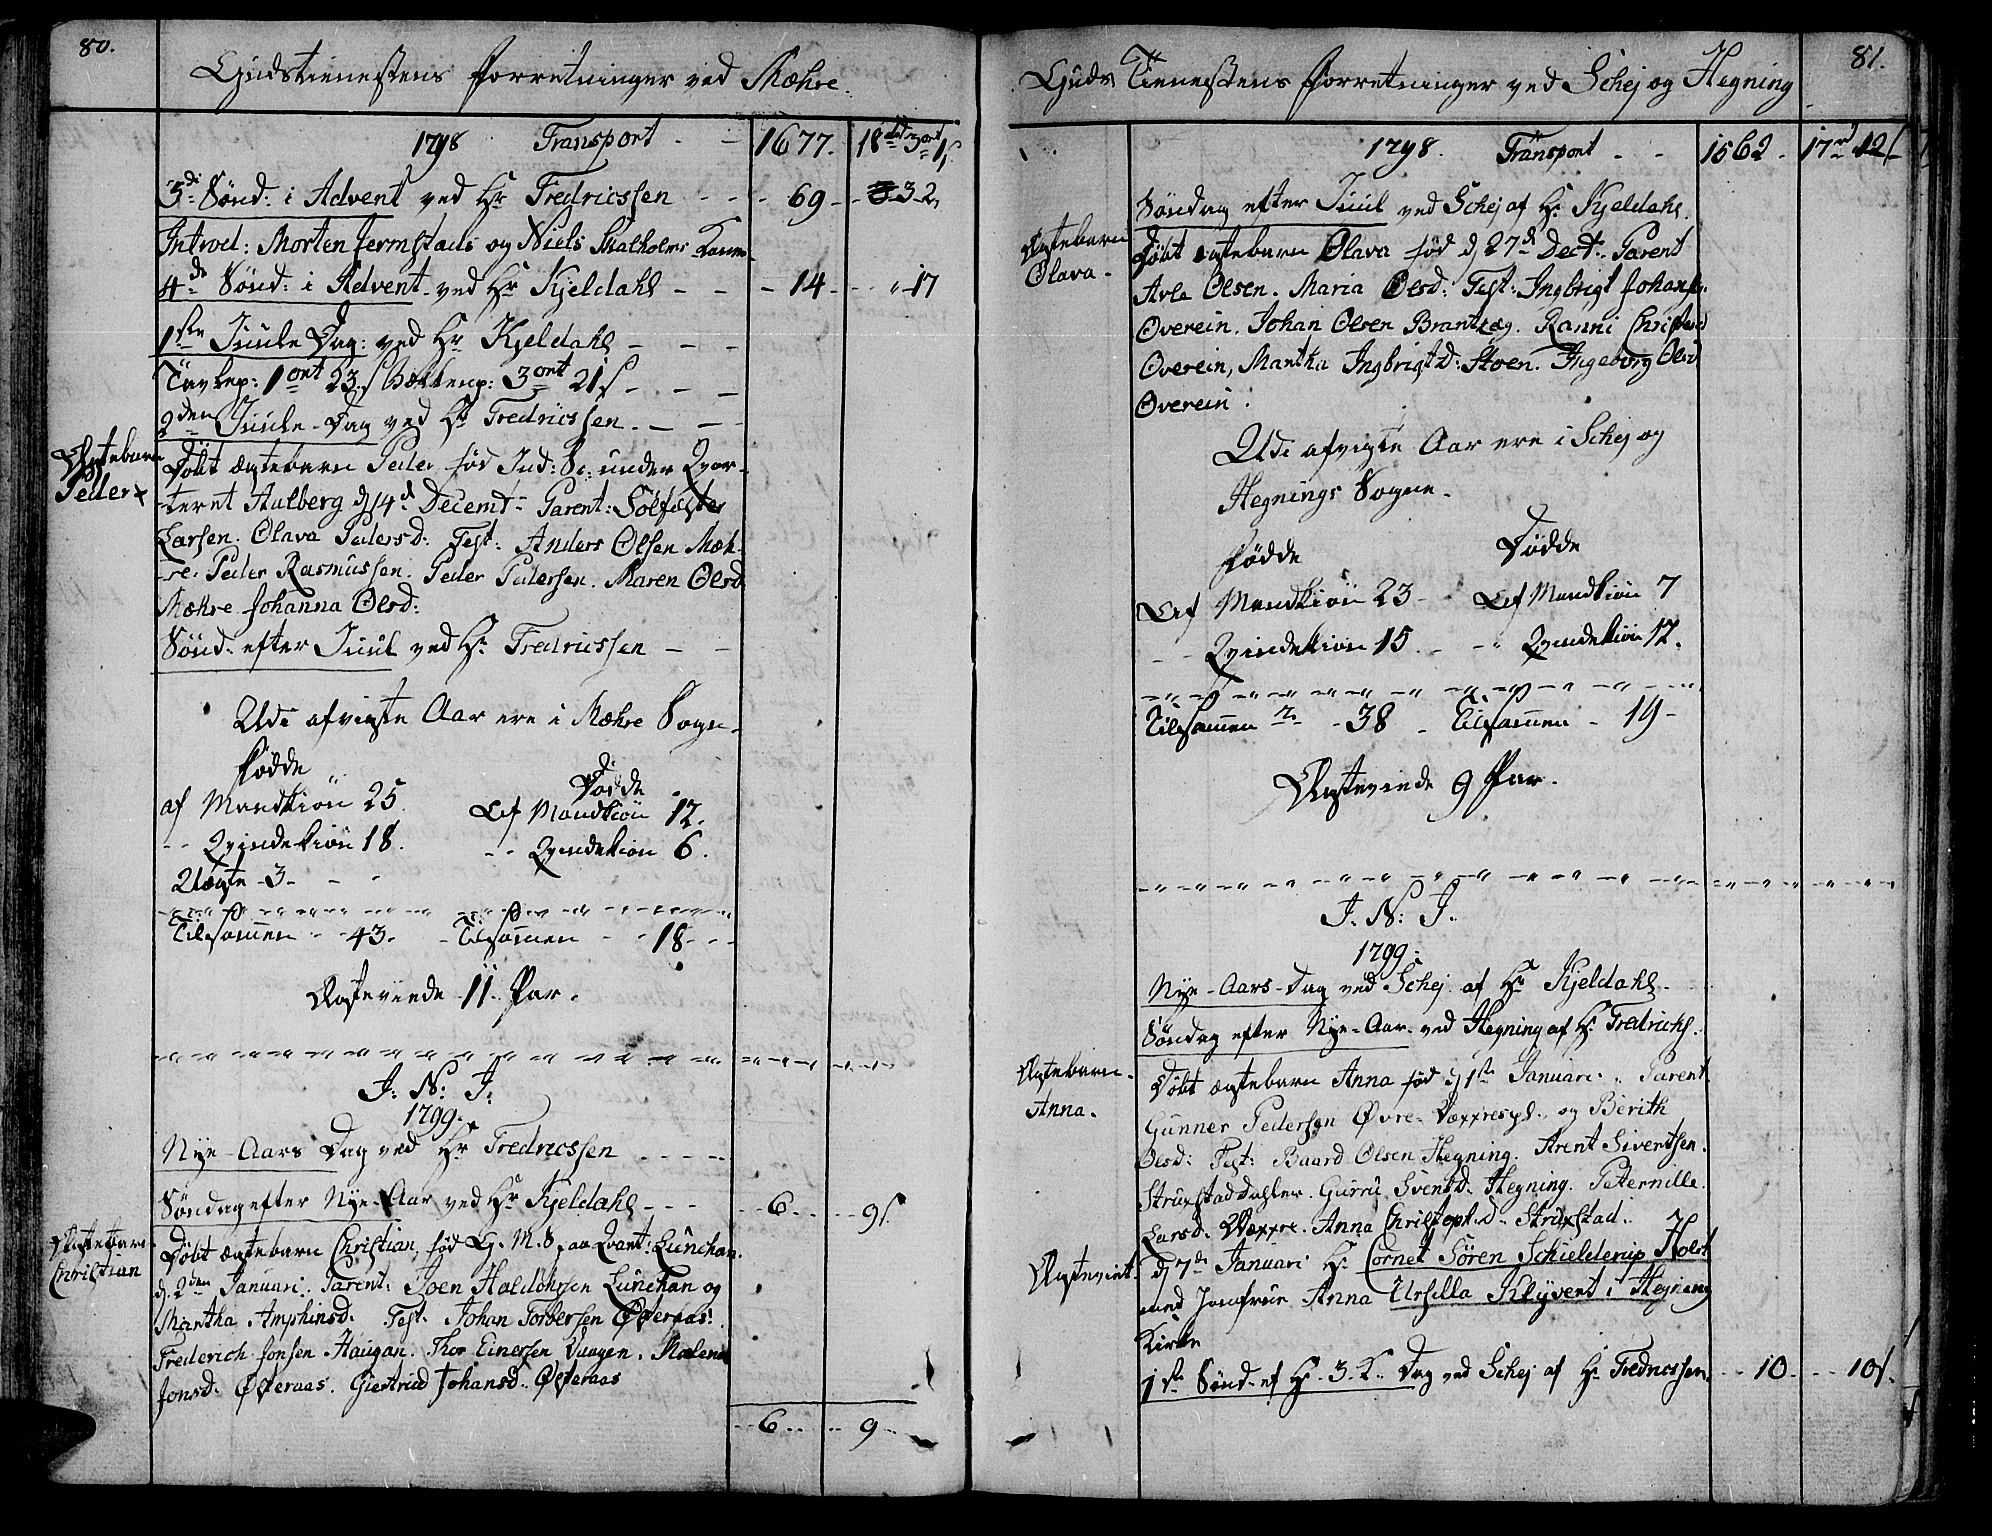 80.
Gudstienestens Forretninger ved Mæhre.
1798 Transport - - 1677. 18 3 ort 1 s
3die Sønd: i Advent ved Hr Fredricssen - - - 69 - - 3 2,
Introd: Morten Jermstads og Niels Skalholms Koner
4de Sønd: i Advent ved Hr Kjeldahl - - - 14 - - " 17
1ste Juule Dag: ved Hr Kjeldahl - - -
Tavlep: 1 ort 23 s Bækkenp: 3 ort 21 s - - -
2den Juule-Dag ved Hr Fredricssen. - - -
Ægtebarn
Peder
Døbt ægtebarn Peder, fød Ind: S: under Qvar-
teret Aalberg d 14d Decembr: Parent: Solfæster
Larsen. Olava Pedersd: Test: Anders Olsen Mæh-
re. Peder Rasmussen. Peder Pedersen. Maren Olsd
Mæhre Johanna Olsd:
Sønd: efter Juul ved Hr Fredricssen - -
Udi afvigte Aar ere i Mæhre Sogn.
Fødde Dødde
af Mandkiön 25. Af Mandkiön 12.
- - Qvindekiön 18. - - Qvindekiön 6.
Uægte - 3 - - -
Tilsammen - - 43. - Tilsammen - - 18 - - -
Ægteviede 11. Par.
J. N. J.
1799.
Nye-Aars Dag ved Hr Fredricssen - - - - -
Søndag efter Nye-Aar ved Hr Kjeldahl - - - - - 6 - - - 9 s
Ægtebarn
Christian
Døbt ægtebarn Christian, fød G. M. S paa Qvart: Lunchan.
d. 2den Januari: Parent: Joen Haldorsen Lunchan og
Martha Amphinsd. Test. Johan Torbersen Østeraas.
Frederich Jonsen Haugan. Thor Einersen Vaagen. Malena
Jonsd: Østeraas. Giertrud Johansd. Østeraas
- - 6 - - - - 9
81.
Guds Tienestens Forretninger ved Schej og Hegning
1798. Transport - - 1562. 17 rd 12 s
Søndag efter Juul ved Schej af Hr Kjeldahl.
Ægtebarn
Olava.
Døbt ægtebarn Olava fød d 27d Decbr. Parent
Arle Olsen. Maria Olsd: Test: Ingbrigt Johans:
Overein, Johan Olsen Brantzæg. Ranni Christend
Overein, Martha Ingbrigtd: Stoen. Ingeborg Olsd
Overein.
Udi afvigte Aar ere i Schej og
Hegnings Sogne.
Fødde Dødde
Af Mandkiön 23 - Af Mandkiön 7
- - Qvindekiön 15. - - Qvindekiön 12.
Tilsammen - 38 - Tilsammen - 19 -
Ægteviede 9 Par.
J. N. J.
1799.
Nye-Aars-Dag ved Schej af Hr Kjeldahl -
Søndag efter Nye-Aar. ved Hegning af Hr Fredrichs.
Ægtebarn.
Anna.
Døbt ægtebarn Anna fød d 1ste Januari. Parent
Gunner Pedersen Øvre- og Berith
Olsd: Test: Baard Olsen Hegning. Arent Siventsen.
Struxstaddahlen. Gurru Sventsd. Hegning. Peternille.
Larsd. Anna Christoph.d. Struxstad.
Ægteviet.
d 7de Januari Hr Cornet Sören Schielderup Holst
med Jomfrue Anna Ursilla Klyvert i Hegning
Kirke
1ste Sønd. ef H. 3. K. Dag ved Schej af Hr Fredricssen. - - 10 - - - 10 s.